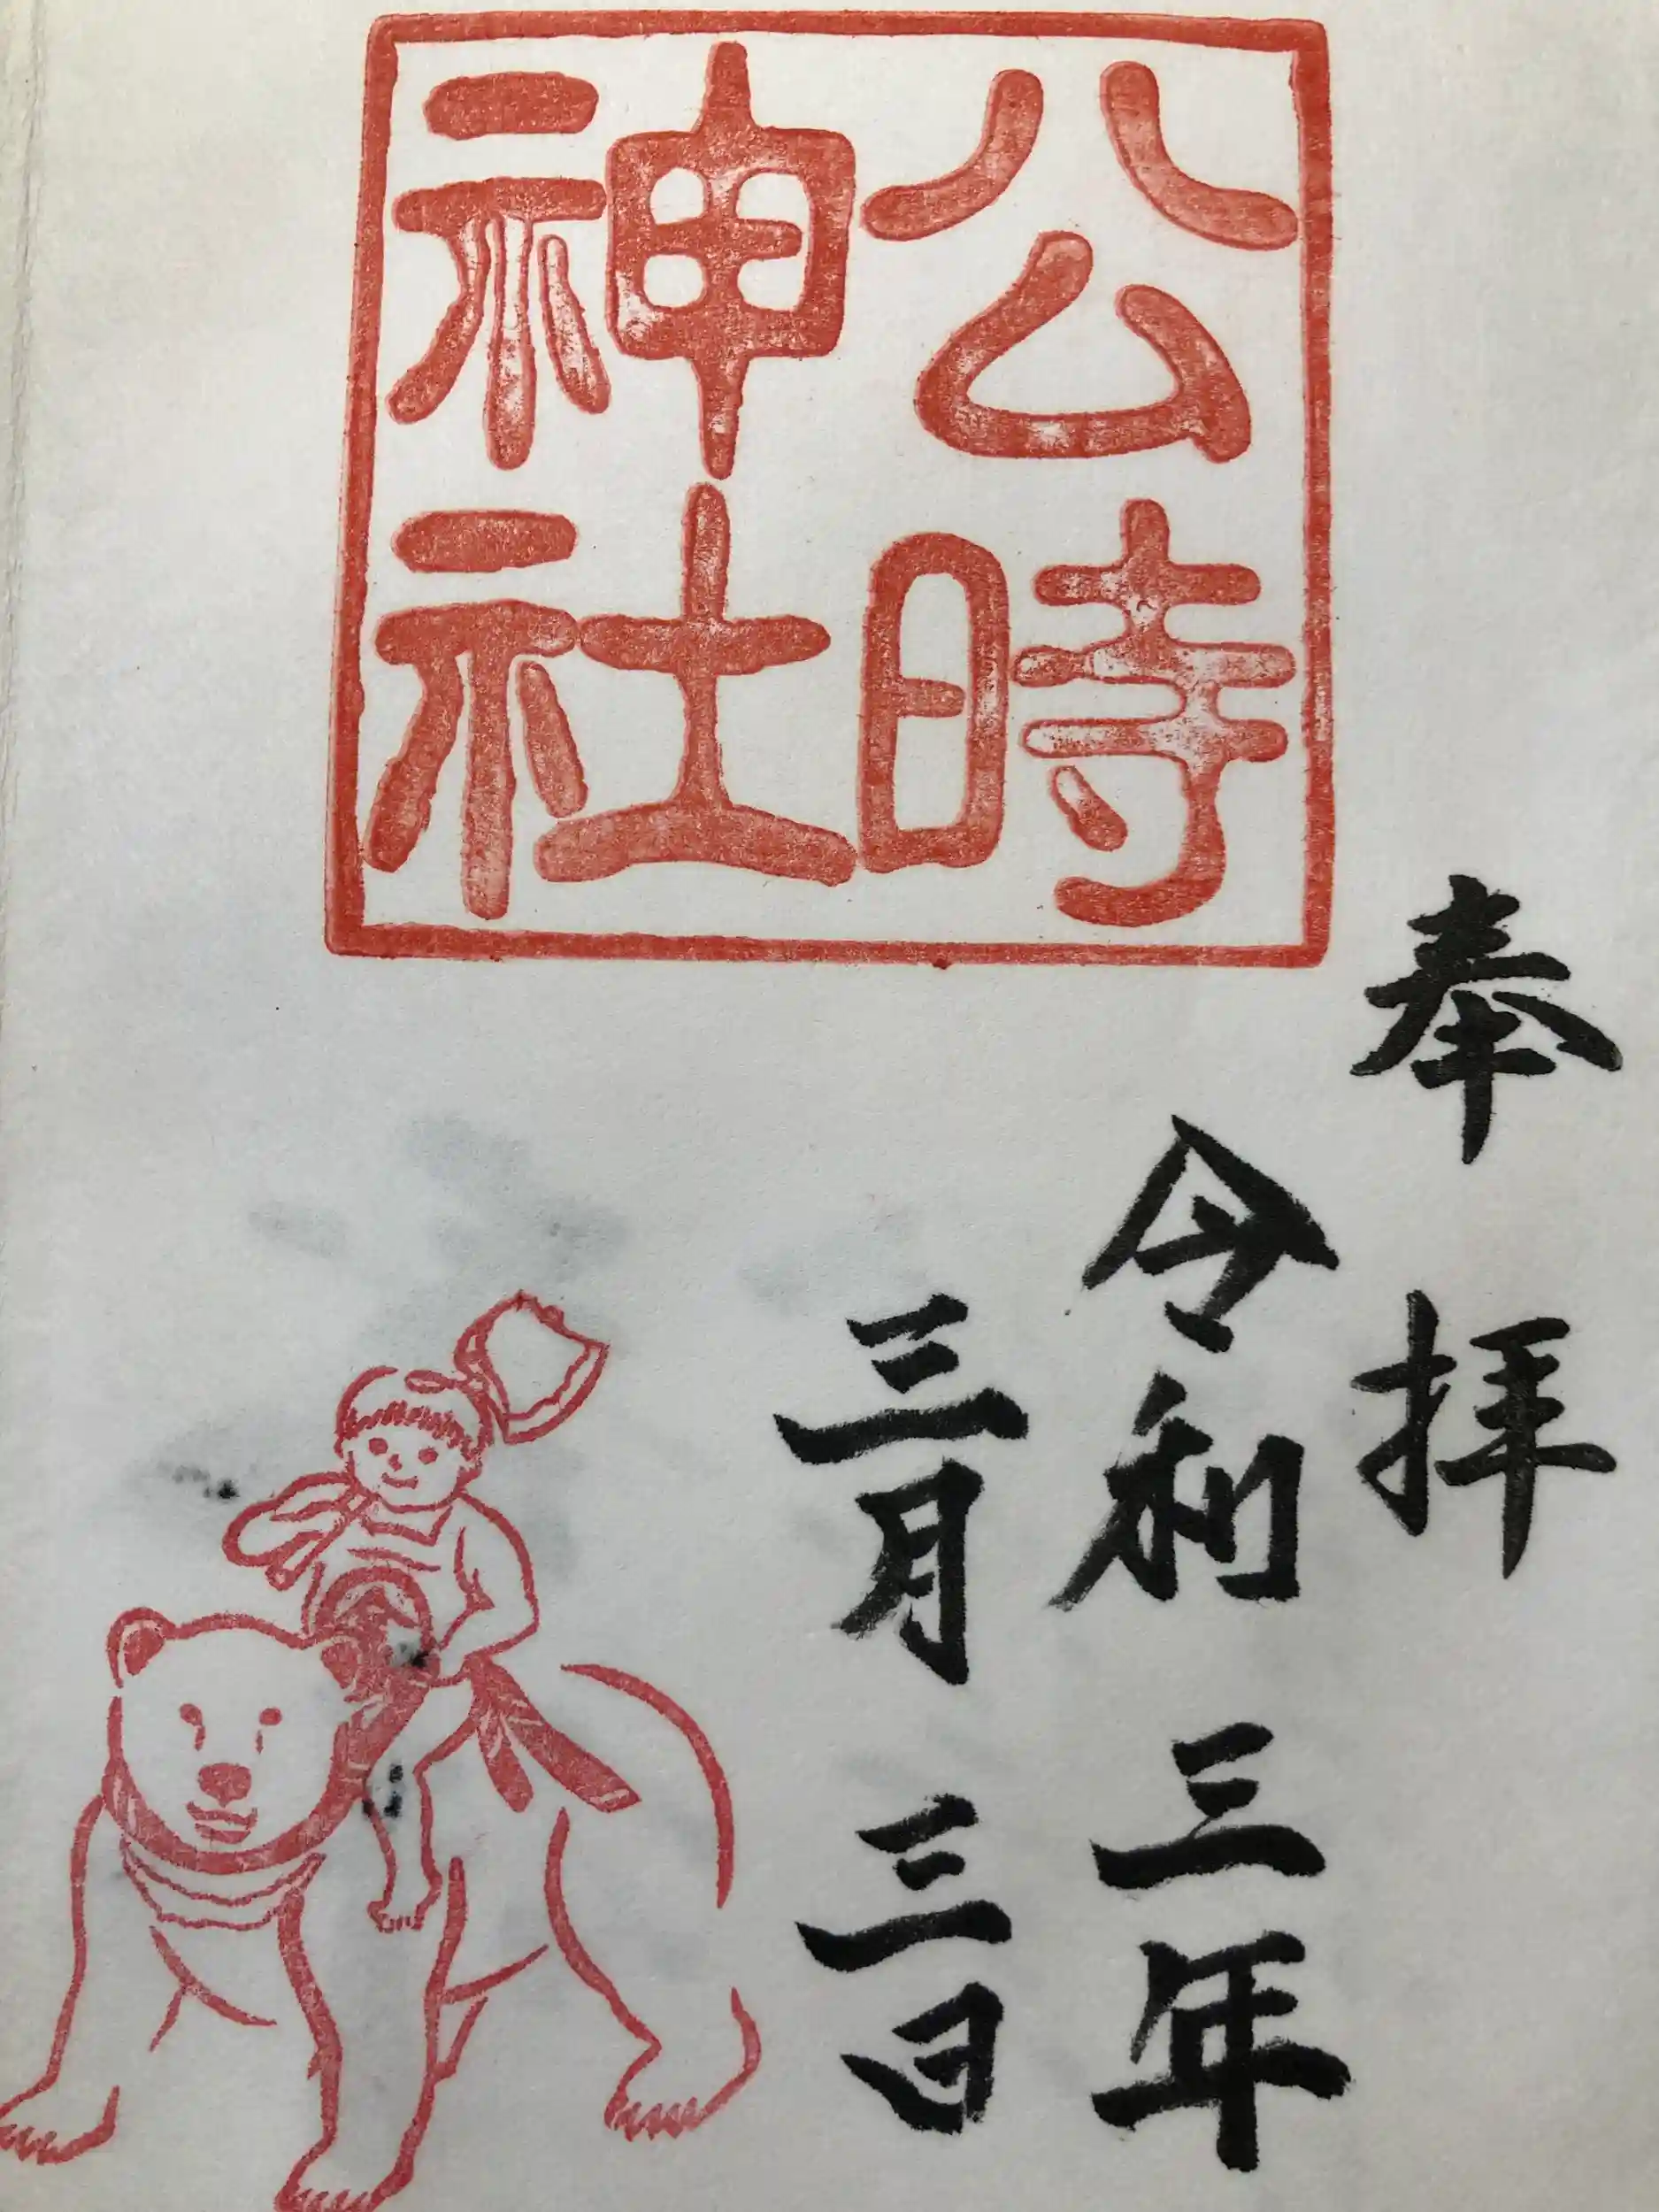 公時
神社
奉拝
令和三年
三月三日
金